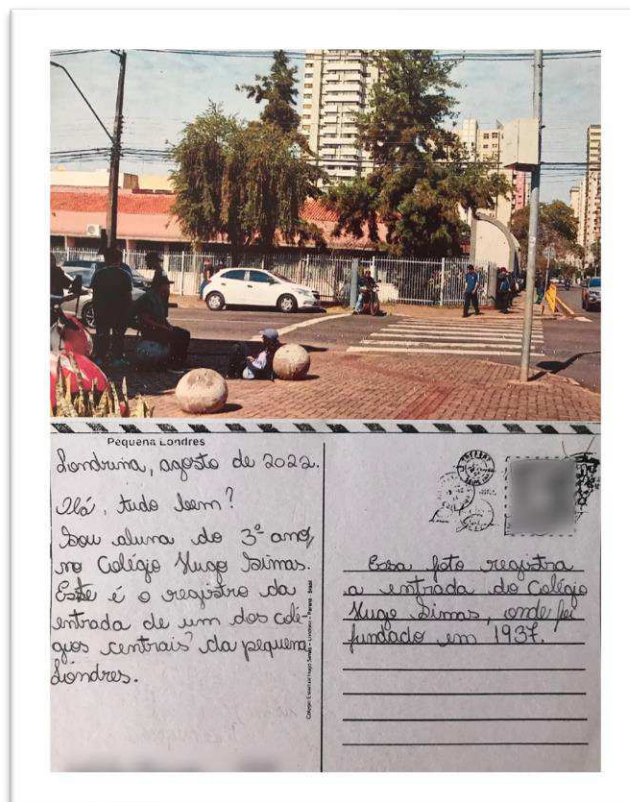 Pequena Londres
Londrina, agosto de 2022.
Olá, tudo bem?
Sou aluna do 3º ano,
no Colégio Hugo Simas.
Este é o registro da
entrada de um dos colé-
gios centrais da pequena
Londres.
Essa foto registra
a entrada do Colégio
Hugo Simas, onde foi
fundado em 1937.